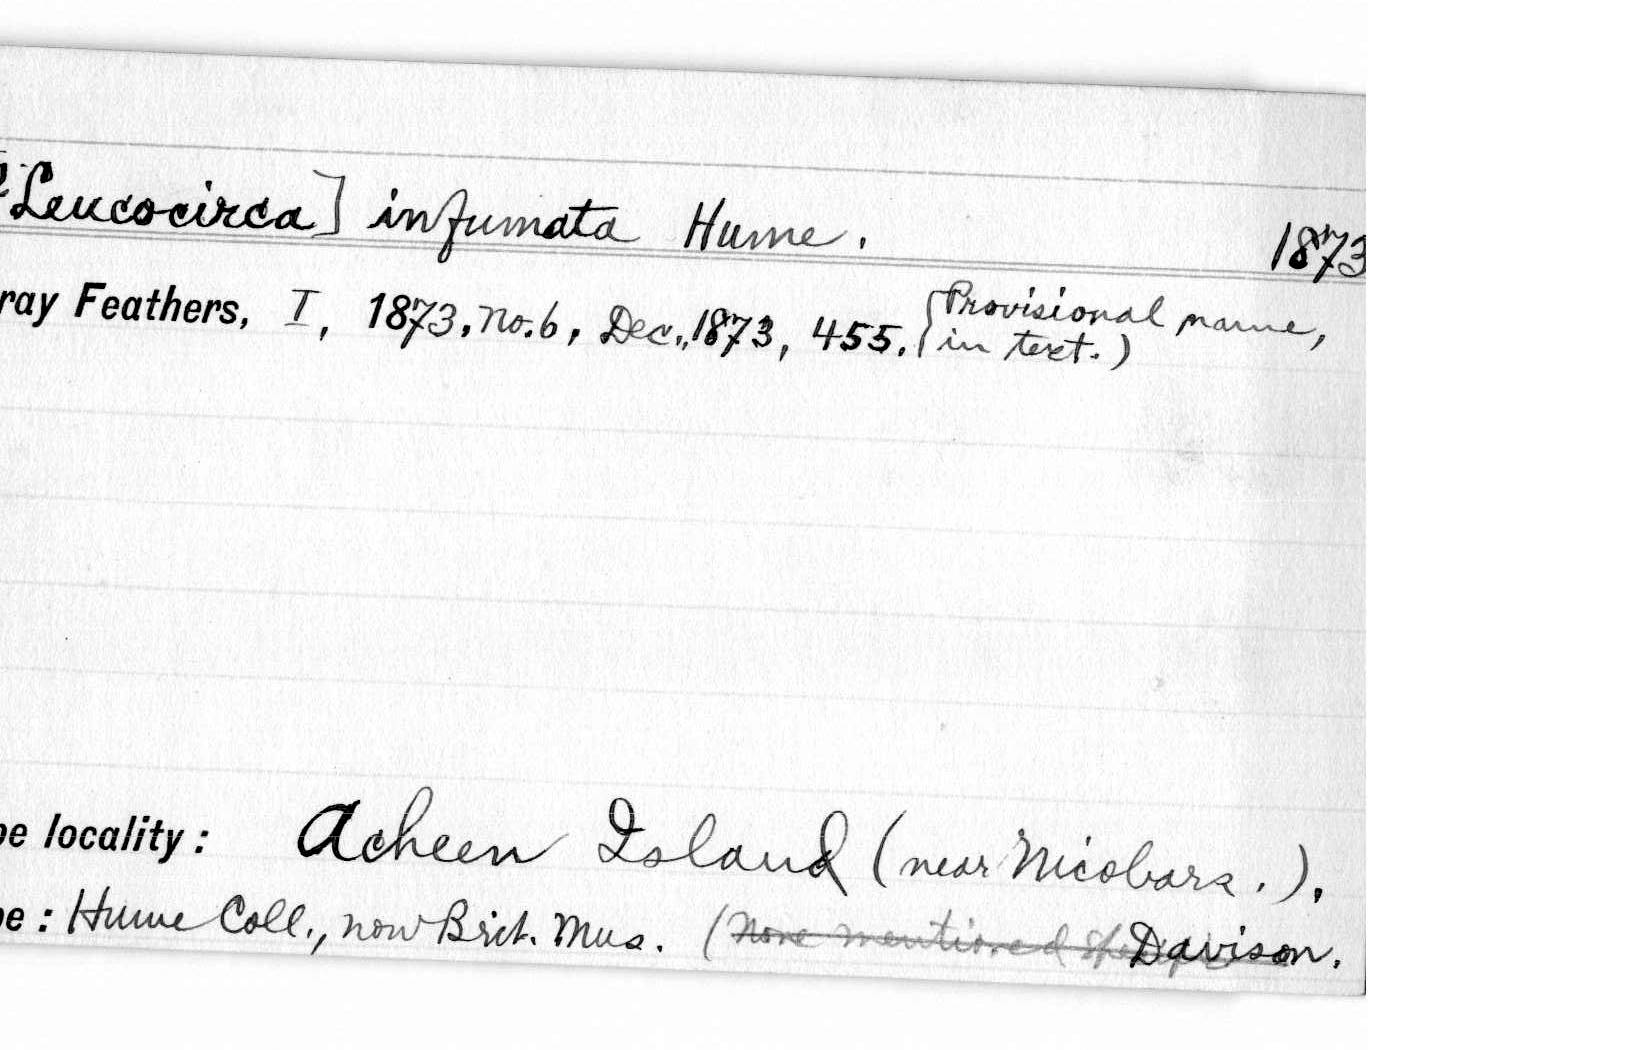 Leucocirca] infumata Hume. 1873
ray Feathers, I, 1873, no. 6, Dec., 1873, 455. (Provisional name,
in text.)
pe locality: Acheen Island (near Nicobars.).
pe: Hume Coll., now Brit. Mus. (None mentioned Davison.